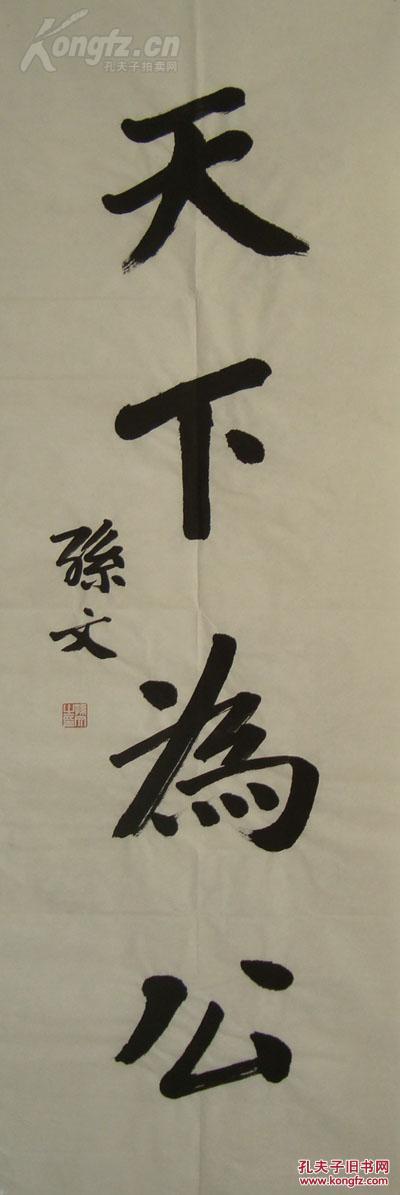 Kongfz.cn
孔夫子拍卖网
天下為公
孫文
孔夫子旧书网
www.kongfz.com